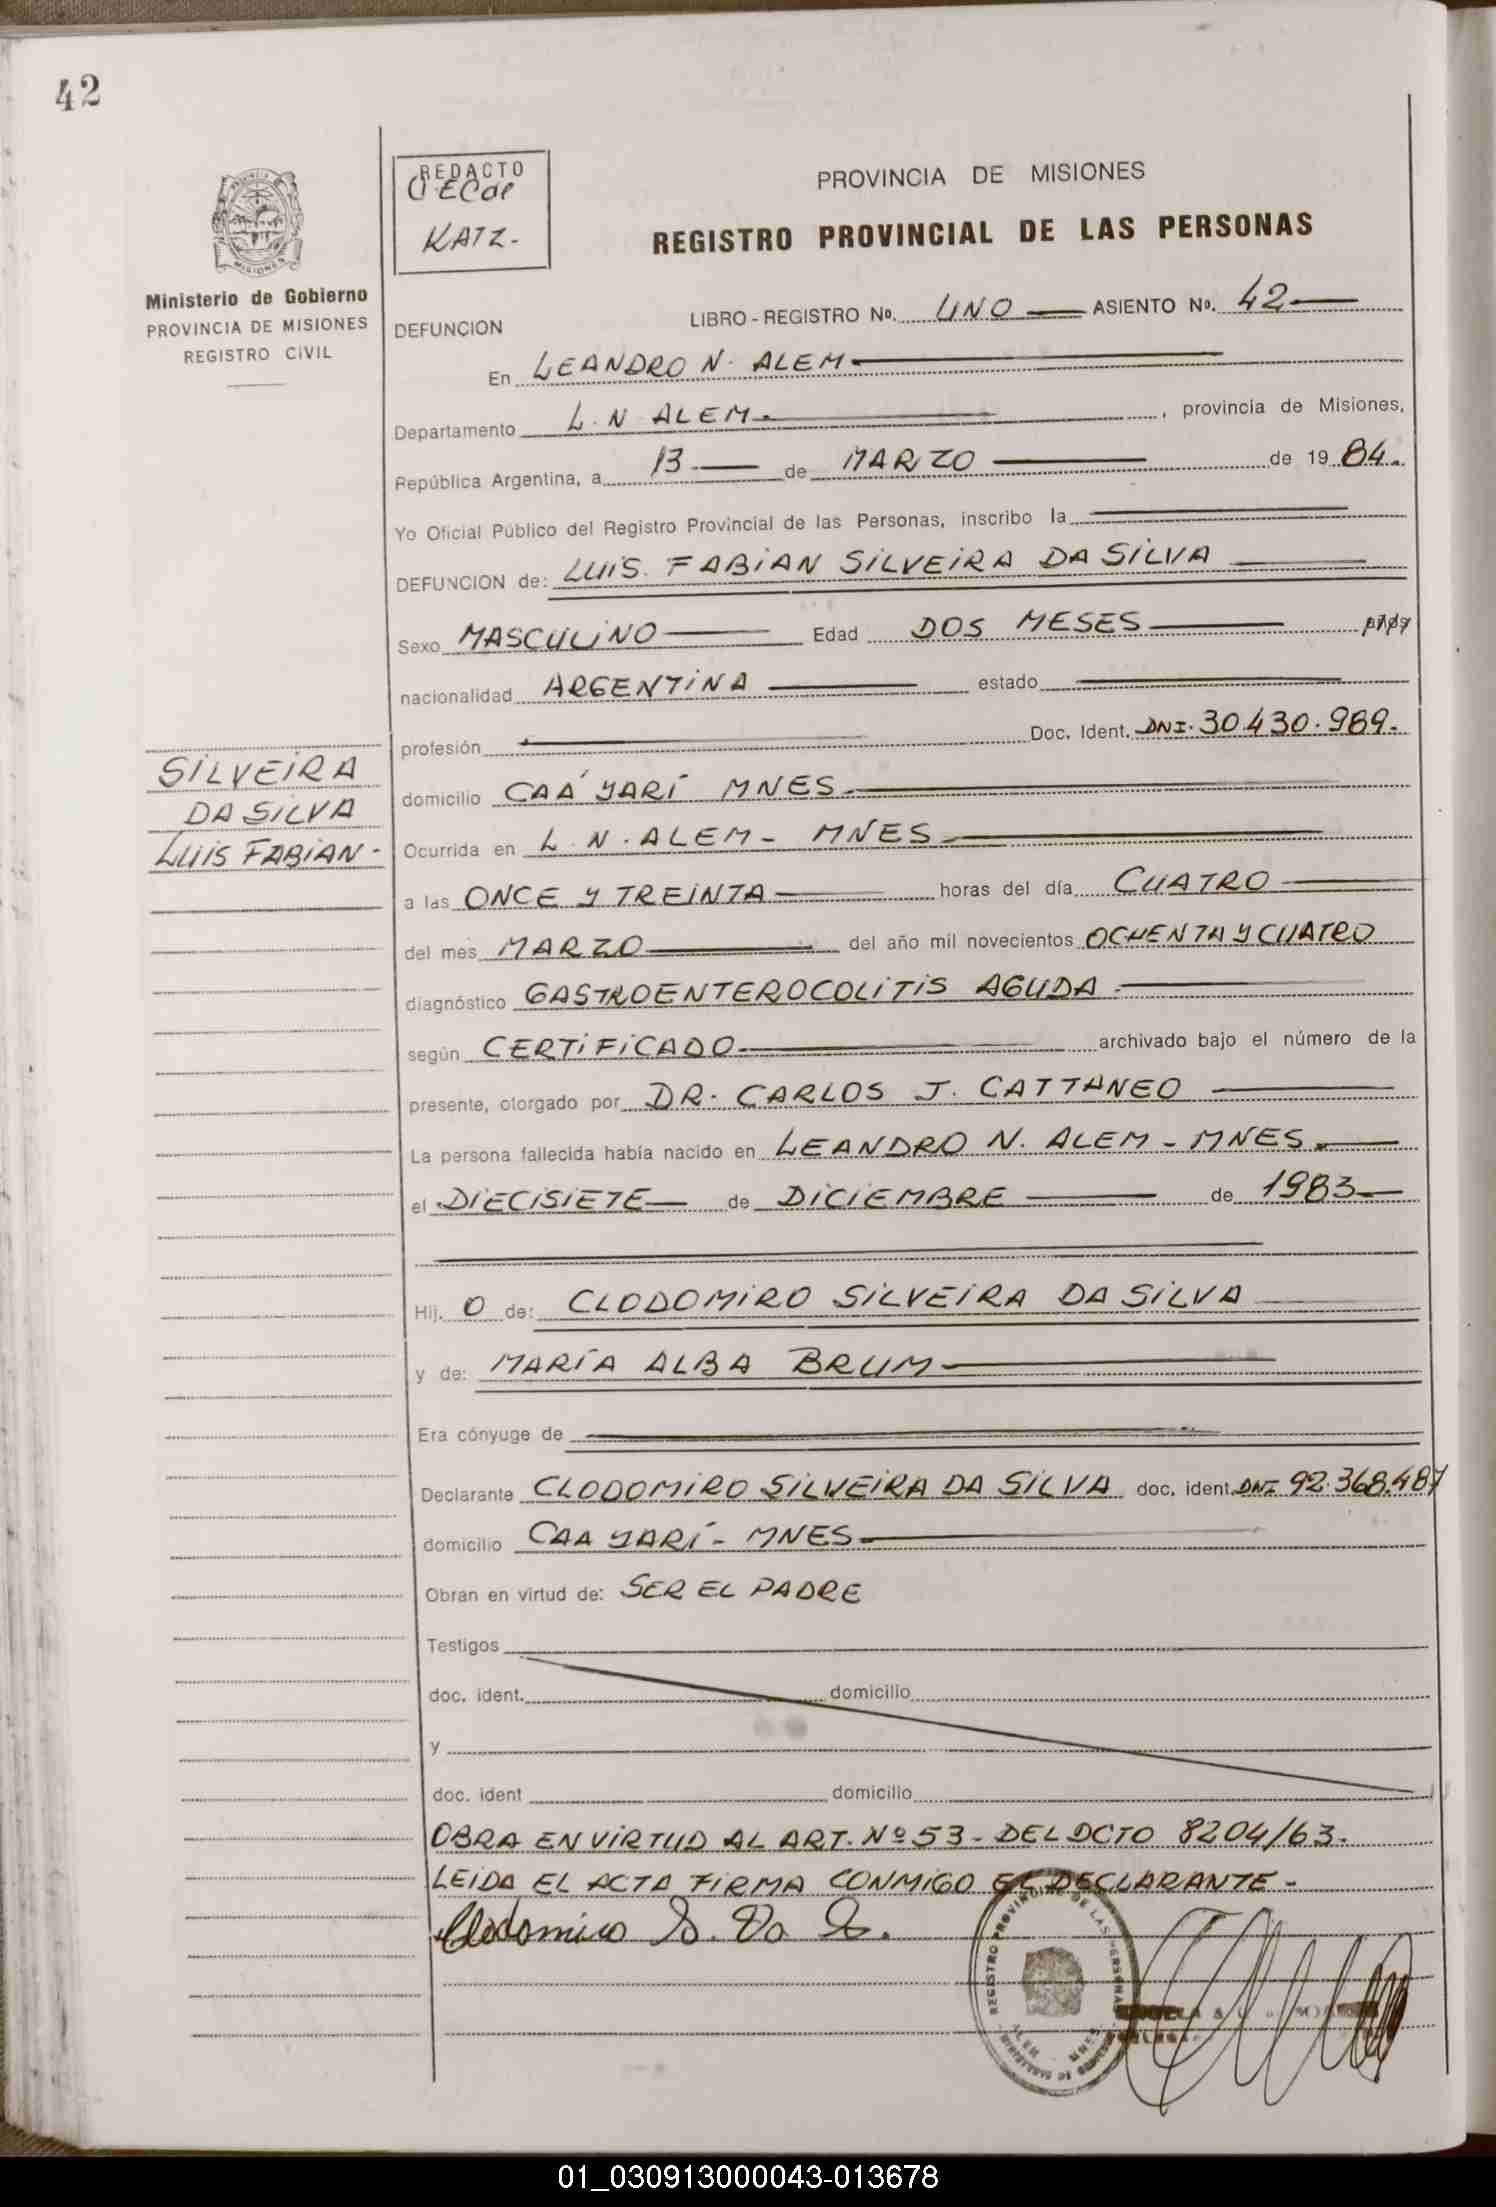 42
REDACTO
KATZ-
PROVINCIA DE MISIONES
REGISTRO PROVINCIAL DE LAS PERSONAS
Ministerio de Gobierno
PROVINCIA DE MISIONES
REGISTRO CIVIL
DEFUNCION LIBRO - REGISTRO Nº. UNO ASIENTO Nº. 42
En LEANDRO N. ALEM
Departamento L. N ALEM. , provincia de Misiones,
República Argentina, a 13 de MARZO de 19 84.
Yo Oficial Público del Registro Provincial de las Personas, inscribo la
DEFUNCION de: LUIS. FABIAN SILVEIRA DA SILVA
Sexo MASCULINO Edad DOS MESES
nacionalidad ARGENTINA estado
profesión Doc. Ident. DNI. 30.430.989.
SILVEIRA
DA SILVA
LUIS FABIAN-
domicilio CAA' YARÍ MNES
Ocurrida en L. N. ALEM - MNES
a las ONCE Y TREINTA horas del día CUATRO
del mes MARZO del año mil novecientos OCHENTA Y CUATRO
diagnóstico GASTROENTEROCOLITIS AGUDA
según CERTIFICADO archivado bajo el número de la
presente, otorgado por DR. CARLOS J. CATTANEO
La persona fallecida había nacido en LEANDRO N. ALEM - MNES.
el DIECISIETE de DICIEMBRE de 1983
Hij. O de: CLODOMIRO SILVEIRA DA SILVA
y de: MARÍA ALBA BRUM
Era cónyuge de
Declarante CLODOMIRO SILVEIRA DA SILVA doc. ident. DNI 92.368.487
domicilio CAA YARÍ - MNES
Obran en virtud de: SER EL PADRE
Testigos
doc. ident. domicilio
y
doc. ident domicilio
OBRA EN VIRTUD AL ART. Nº 53 - DEL DCTO 8204/63.
LEIDA EL ACTA FIRMA CONMIGO EL DECLARANTE -
Clodomiro S. Da S.
REGISTRO PROVINCIAL DE LAS PERSONAS
ALEM - MNES
01_030913000043-013678